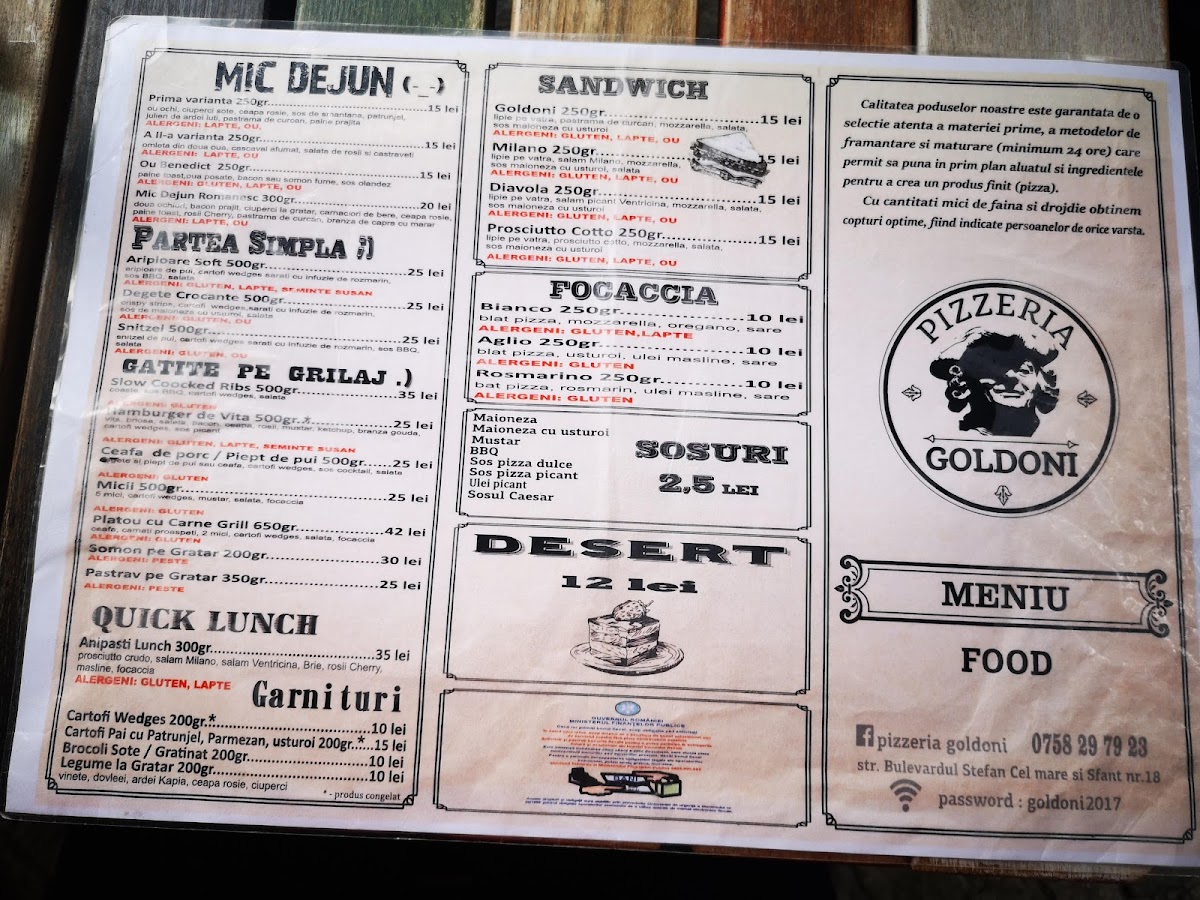 MIC DEJUN (-_-)
Prima varianta 250gr. 15 lei
ou ochi, ciuperci sote, ceapa rosie, sos de smantana, patrunjel,
julien de ardei iuti, pastrama de curcan, paine prajita
ALERGENI: LAPTE, OU.
A II-a varianta 250gr. 15 lei
omleta din doua oua, cascaval afumat, salata de rosii si castraveti
ALERGENI: LAPTE, OU
Ou Benedict 250gr. 15 lei
paine toast,oua posate, bacon sau somon fume, sos olandez
ALERGENI: GLUTEN, LAPTE, OU
Mic Dejun Romanesc 300gr. 20 lei
doua ochiuri, bacon prajit, ciuperci la gratar, carnaciori de bere, ceapa rosie,
paine toast, rosii Cherry, pastrama de curcan, branza de capra cu marar
ALERGENI: LAPTE, OU
PARTEA SIMPLA ;)
Aripioare Soft 500gr. 25 lei
aripioare de pui, cartofi wedges sarati cu infuzie de rozmarin,
sos BBQ, salata
ALERGENI: GLUTEN, LAPTE, SEMINTE SUSAN
Degete Crocante 500gr. 25 lei
crispy strips, cartofi wedges,sarati cu infuzie de rozmarin,
sos de maioneza cu usturoi, salata
ALERGENI: GLUTEN, OU
Snitzel 500gr. 25 lei
snizel de pui, cartofi wedges sarati cu infuzie de rozmarin, sos BBQ,
salata
ALERGENI: GLUTEN, OU
GATITE PE GRILAJ .)
Slow Coocked Ribs 500gr. 35 lei
coaste, sos BBQ, cartofi wedges, salata
ALERGENI: GLUTEN
Hamburger de Vita 500gr.* 25 lei
vita, briosa, salata, bacon, ceapa, rosii, mustar, ketchup, branza gouda,
cartofi wedges, sos picant
ALERGENI: GLUTEN, LAPTE, SEMINTE SUSAN
Ceafa de porc / Piept de pui 500gr. 25 lei
si piept de pui sau ceafa, cartofi wedges, sos cocktail, salata
ALERGENI: GLUTEN
Micii 500gr. 25 lei
5 mici, cartofi wedges, mustar, salata, focaccia
ALERGENI: GLUTEN
Platou cu Carne Grill 650gr. 42 lei
ceafa, carnati proaspeti, 2 mici, cartofi wedges, salata, focaccia
ALERGENI: GLUTEN
Somon pe Gratar 200gr. 30 lei
ALERGENI: PESTE
Pastrav pe Gratar 350gr. 25 lei
ALERGENI: PESTE
QUICK LUNCH
Anipasti Lunch 300gr. 35 lei
prosciutto crudo, salam Milano, salam Ventricina, Brie, rosii Cherry,
masline, focaccia
ALERGENI: GLUTEN, LAPTE
Garnituri
Cartofi Wedges 200gr.* 10 lei
Cartofi Pai cu Patrunjel, Parmezan, usturoi 200gr.* 15 lei
Brocoli Sote / Gratinat 200gr. 10 lei
Legume la Gratar 200gr. 10 lei
vinete, dovleei, ardei Kapia, ceapa rosie, ciuperci
* - produs congelat
SANDWICH
Goldoni 250gr. 15 lei
lipie pe vatra, pastrama de curcan, mozzarella, salata,
sos maioneza cu usturoi
ALERGENI: GLUTEN, LAPTE, OU
Milano 250gr. 15 lei
lipie pe vatra, salam Milano, mozzarella,
sos maioneza cu usturoi, salata
ALERGENI: GLUTEN, LAPTE, OU
Diavola 250gr. 15 lei
lipie pe vatra, salam picant Ventricina, mozzarella, salata,
sos maioneza cu usturoi
ALERGENI: GLUTEN, LAPTE, OU
Prosciutto Cotto 250gr. 15 lei
lipie pe vatra, prosciutto cotto, mozzarella, salata,
sos maioneza cu usturoi
ALERGENI: GLUTEN, LAPTE, OU
FOCACCIA
Bianco 250gr. 10 lei
blat pizza, mozzarella, oregano, sare
ALERGENI: GLUTEN,LAPTE
Aglio 250gr. 10 lei
blat pizza, usturoi, ulei masline, sare
ALERGENI: GLUTEN
Rosmarino 250gr. 10 lei
bat pizza, rosmarin, ulei masline, sare
ALERGENI: GLUTEN
Maioneza
Maioneza cu usturoi
Mustar
BBQ
Sos pizza dulce
Sos pizza picant
Ulei picant
Sosul Caesar
SOSURI
2,5 LEI
DESERT
12 lei
GUVERNUL ROMÂNIEI
MINISTERUL FINANŢELOR PUBLICE
BANI
Calitatea poduselor noastre este garantata de o
selectie atenta a materiei prime, a metodelor de
framantare si maturare (minimum 24 ore) care
permit sa puna in prim plan aluatul si ingredientele
pentru a crea un produs finit (pizza).
Cu cantitati mici de faina si drojdie obtinem
copturi optime, fiind indicate persoanelor de orice varsta.
PIZZERIA
GOLDONI
MENIU
FOOD
pizzeria goldoni 0758 29 79 23
str. Bulevardul Stefan Cel mare si Sfant nr.18
password : goldoni2017